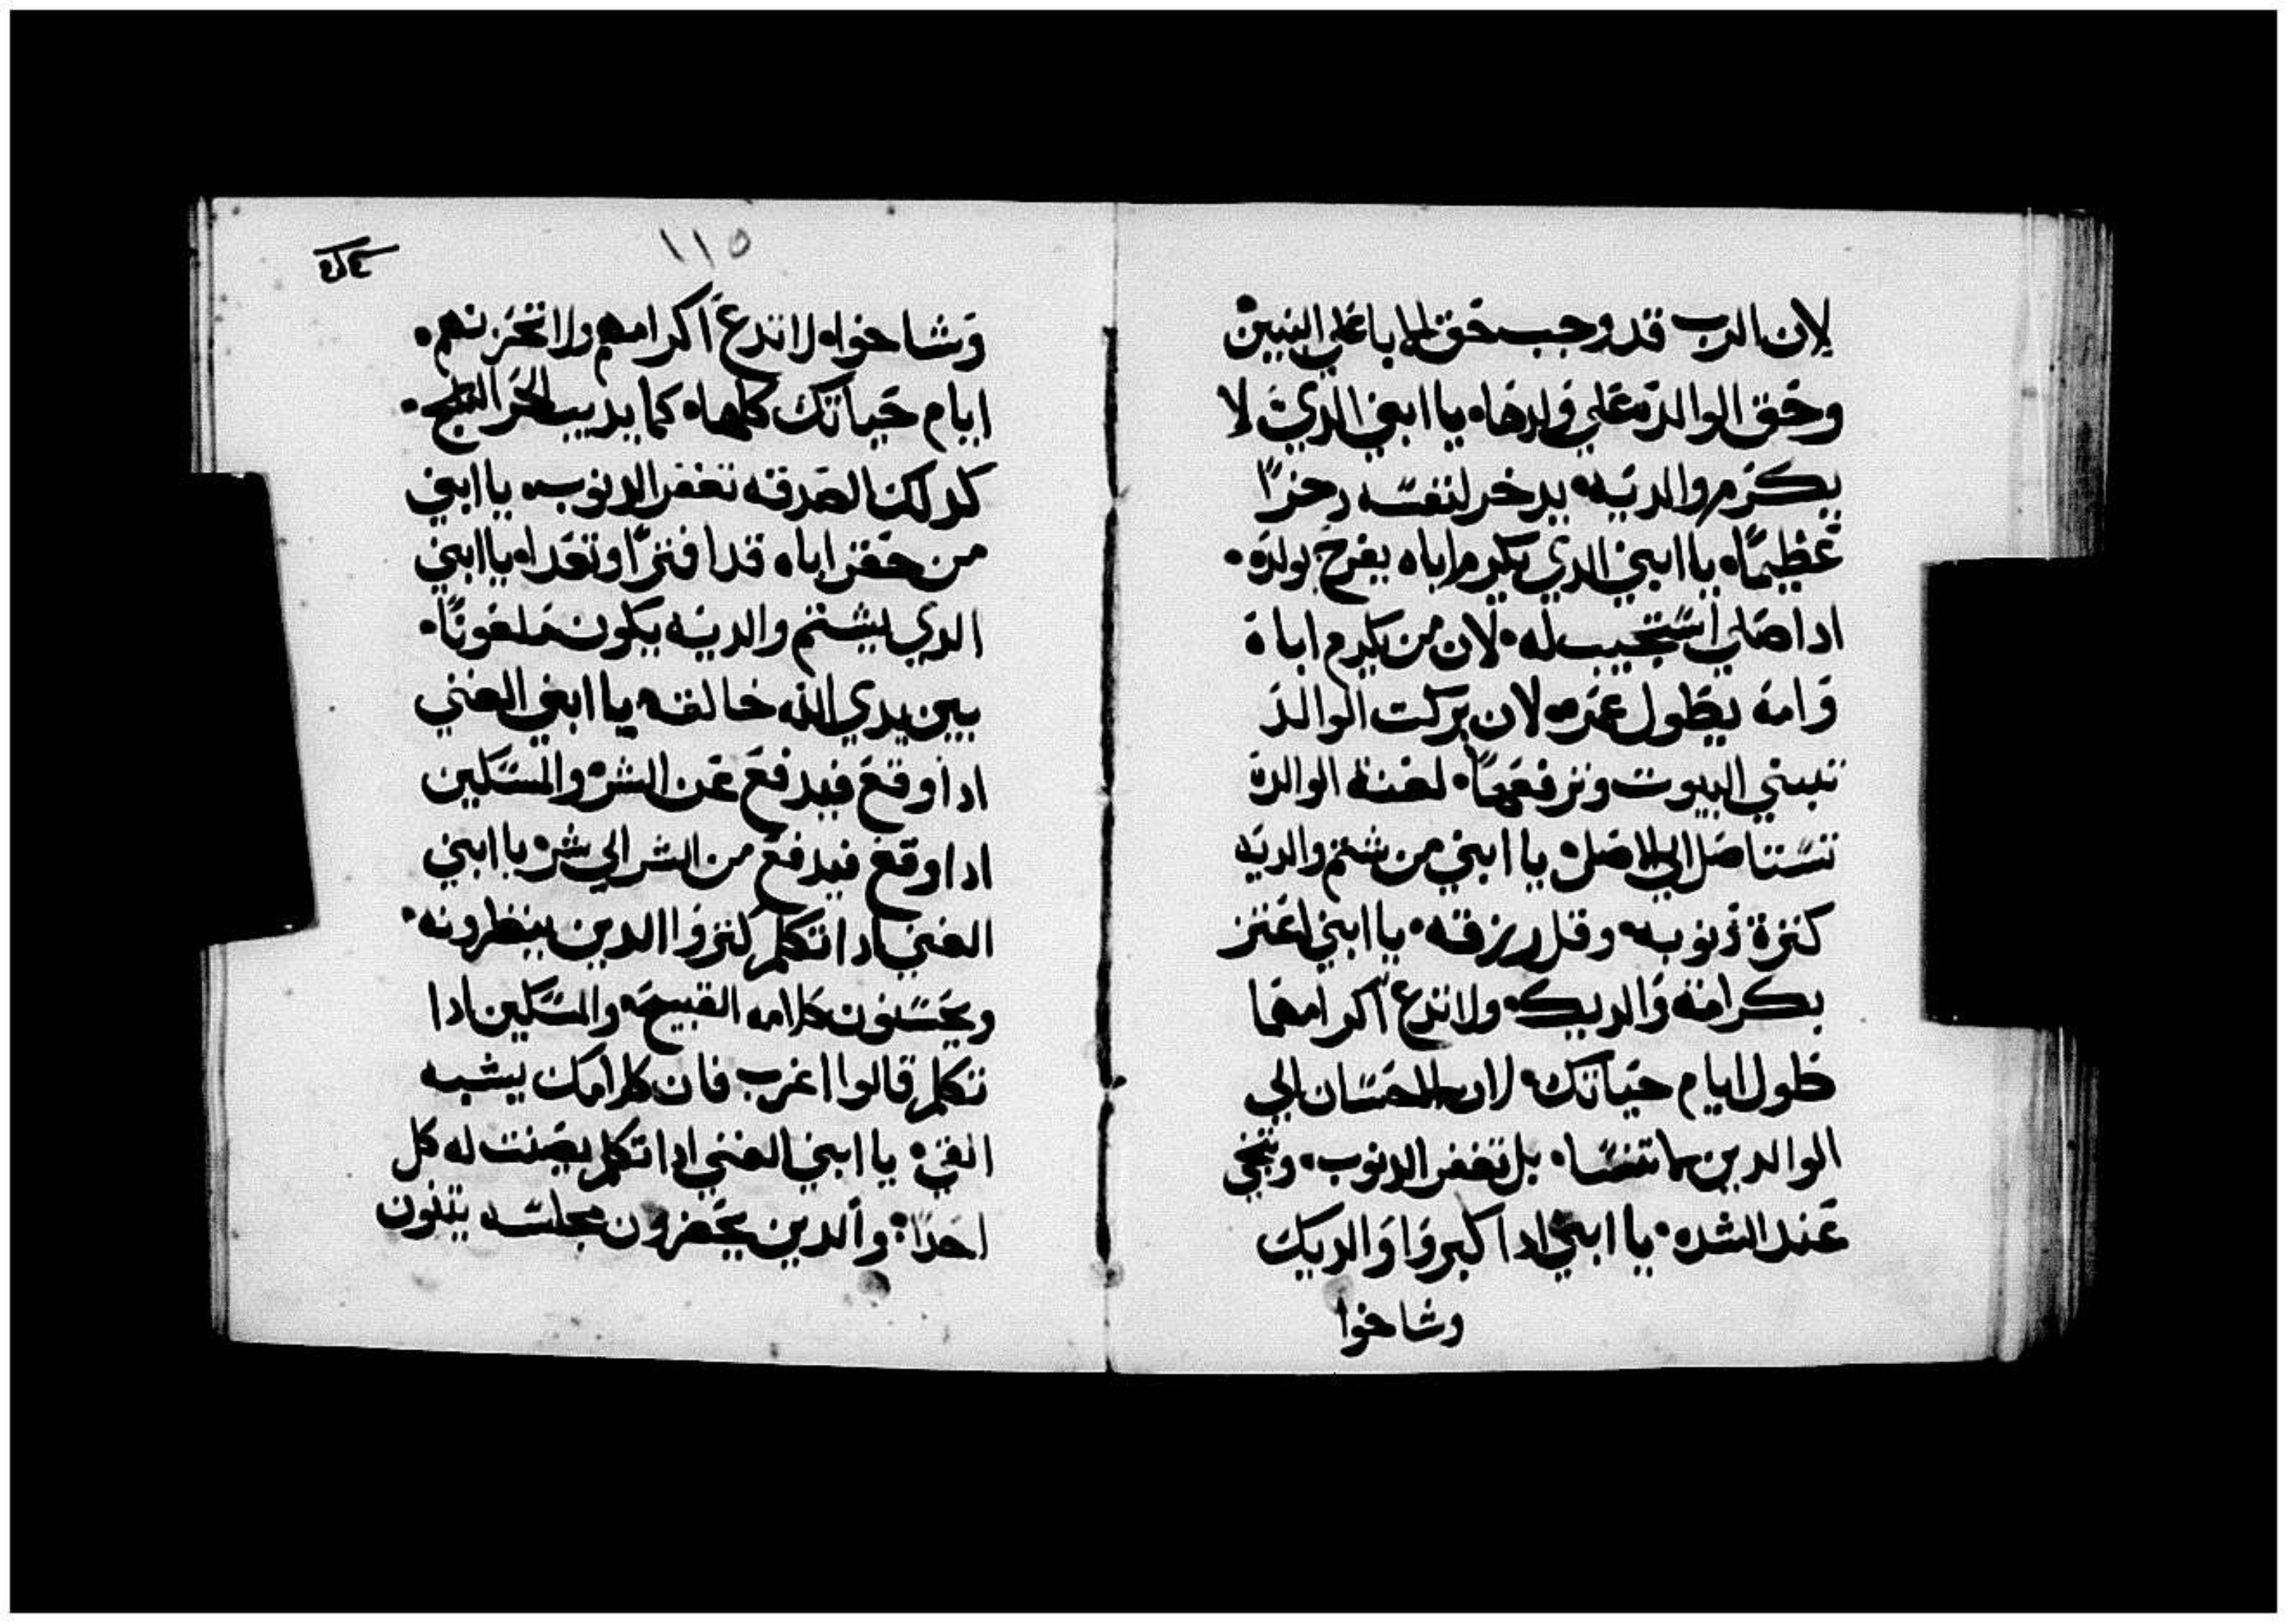 لان الرب قد وجب حق الابا علي البنين
وحق الوالدة علي ولدها، يا ابني الدي لا
يكرم والديه، يدخر لنفسه دخرًا
عظيمًا، يا ابني الدي يكرم اباه يفرح بولده،
ادا صلي استجيب له، لان من يكرم اباه
وامه يطول عمره، لان بركت الوالد
تبني البيوت وترفعها، لعنة الوالدة
تستاصل الي الاصل، يا ابني من شتم والديه
كثرة ذنوبه، وقل رزقه، يا ابني اعتز
بكرامة والديك، ولا تدع اكرامهما
طول ايام حياتك، لان الاحسان الي
الوالدين ما تنسا، بل تغفر الدنوب، وتنجي
عند الشده، يا ابني ادا كبروا والديك
وشاخوا
١١٥
وشاخوا، لا تدع اكرامهم ولا تحزنهم،
ايام حياتك كلها، كما يديب الحر الثلج،
كدلك الصدقه تغفر الدنوب، يا ابني
من حقر اباه قد افترا وتعدا، يا ابني
الدي يشتم والديه يكون ملعونًا،
بين يدي الله خالقه يا ابني الغني
ادا وقع فيدفع عن الشر، والمسكين
ادا وقع فيدفع من الشر الي شر، يا ابني
الغني ادا تكلم كتروا الدين ينظرونه،
ويحسنون كلامه القبيح، والمسكين ادا
تكلم قالوا اغرب فان كلامك يشبه
القي، يا ابني الغني ادا تكلم يصنت له كل
احدًا، والدين يحضرون مجلسه يتنون